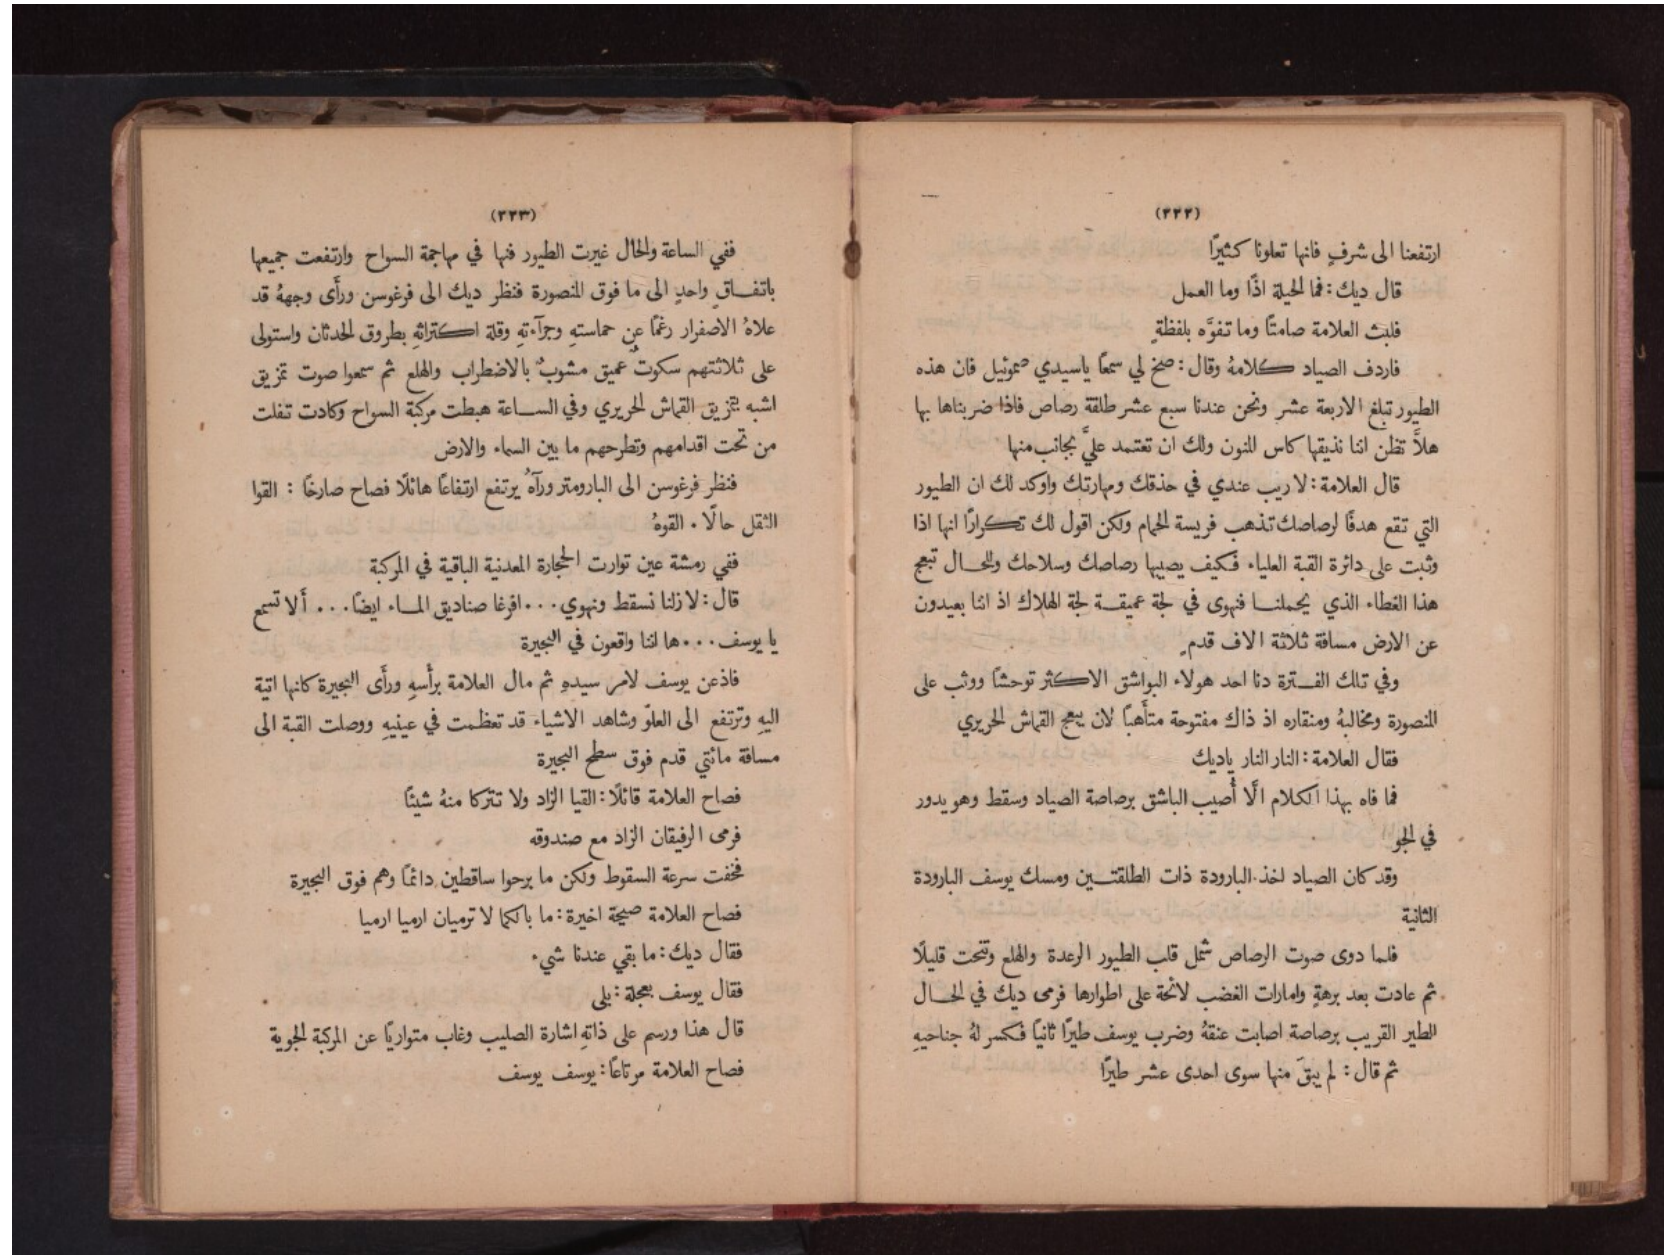 (٢٢٢)
ارتفعنا الى شرفٍ فانها تعاونا كثيرًا
قال ديك : فما الحيلة اذًا وما العمل
فلبث العلامة صامتًا وما تفوَّه بلفظةٍ
فاردف الصياد كلامهُ وقال : صخ لي سمعًا ياسيدي صموئيل فان هذه
الطيور تبلغ الاربعة عشر ونحن عندنا سبع عشر طلقة رصاص فاذا ضربناها بها
هلاَّ تظن اننا نذيقها كاس المنون ولك ان تعتمد عليَّ بجانب منها
قال العلامة : لا ريب عندي في حذقك ومهارتك واوكد لك ان الطيور
التي تقع هدفًا لرصاصك تذهب فريسة الحمام ولكن اقول لك تكرارًا انها اذا
وثبت على دائرة القبة العلياء فكيف يصيبها رصاصك وسلاحك وللحال تبعج
هذا الغطاء الذي يحملنا فنهوى في لجة عميقة لجة الهلاك اذ اننا بعيدون
عن الارض مسافة ثلاثة الاف قدمٍ
وفي تلك الفترة دنا احد هولاء البواشق الاكثر توحشًا ووثب على
المنصورة ومخالبهُ ومنقاره اذ ذاك مفتوحة متأهبًا لان يبعج القماش الحريري
فقال العلامة : النار النار ياديك
فما فاه بهذا الكلام الَّا أُصيب الباشق برصاصة الصياد وسقط وهو يدور
في الجو
وقد كان الصياد اخذ البارودة ذات الطلقتين ومسك يوسف البارودة
الثانية
فلما دوى صوت الرصاص شمل قلب الطيور الرعدة والهلع وتنحت قليلًا
ثم عادت بعد برهةٍ وامارات الغضب لائحة على اطوارها فرمى ديك في الحال
الطير القريب برصاصة اصابت عنقهُ وضرب يوسف طيرًا ثانيًا فكسر لهُ جناحيهِ
ثم قال : لم يبقَ منها سوى احدى عشر طيرًا
(٢٢٣)
ففي الساعة والحال غيرت الطيور فنها في مهاجمة السواح وارتفعت جميعها
باتفاقٍ واحدٍ الى ما فوق المنصورة فنظر ديك الى فرغوسن ورأى وجههُ قد
علاهُ الاصفرار رغمًا عن حماستهِ وجرآءتهِ وقلة اكتراثهِ بطروق الحدثان واستولى
على ثلاثتهم سكوتٌ عميق مشوبٌ بالاضطراب والهلع ثم سمعوا صوت تمزيق
اشبه بتمزيق القماش الحريري وفي الساعة هبطت مركبة السواح وكادت تفلت
من تحت اقدامهم وتطرحهم ما بين السماء والارض
فنظر فرغوسن الى البارومتر ورآهُ يرتفع ارتفاعًا هائلًا فصاح صارخًا : القوا
الثقل حالًا . القوهُ
ففي رمشة عين توارت الحجارة المعدنية الباقية في المركبة
قال : لا زلنا نسقط ونهوي . . . افرغا صناديق الماء ايضًا . . . ألا تسمع
يا يوسف . . . ها اننا واقعون في البحيرة
فاذعن يوسف لامر سيدهِ ثم مال العلامة برأسهِ ورأى البحيرة كانها اتية
اليهِ وترتفع الى العلوّ وشاهد الاشياء قد تعظمت في عينيهِ ووصلت القبة الى
مسافة مائتي قدم فوق سطح البحيرة
فصاح العلامة قائلًا : القيا الزاد ولا تتركا منهُ شيئًا
فرمى الرفيقان الزاد مع صندوقه
فخفت سرعة السقوط ولكن ما برحوا ساقطين دائمًا وهم فوق البحيرة
فصاح العلامة صيحة اخيرة : ما بالكما لا ترميان ارميا ارميا
فقال ديك : ما بقي عندنا شيء
فقال يوسف بعجلة : بلى
قال هذا ورسم على ذاتهِ اشارة الصليب وغاب متواريًا عن المركبة الجوية
فصاح العلامة مرتاعًا : يوسف يوسف